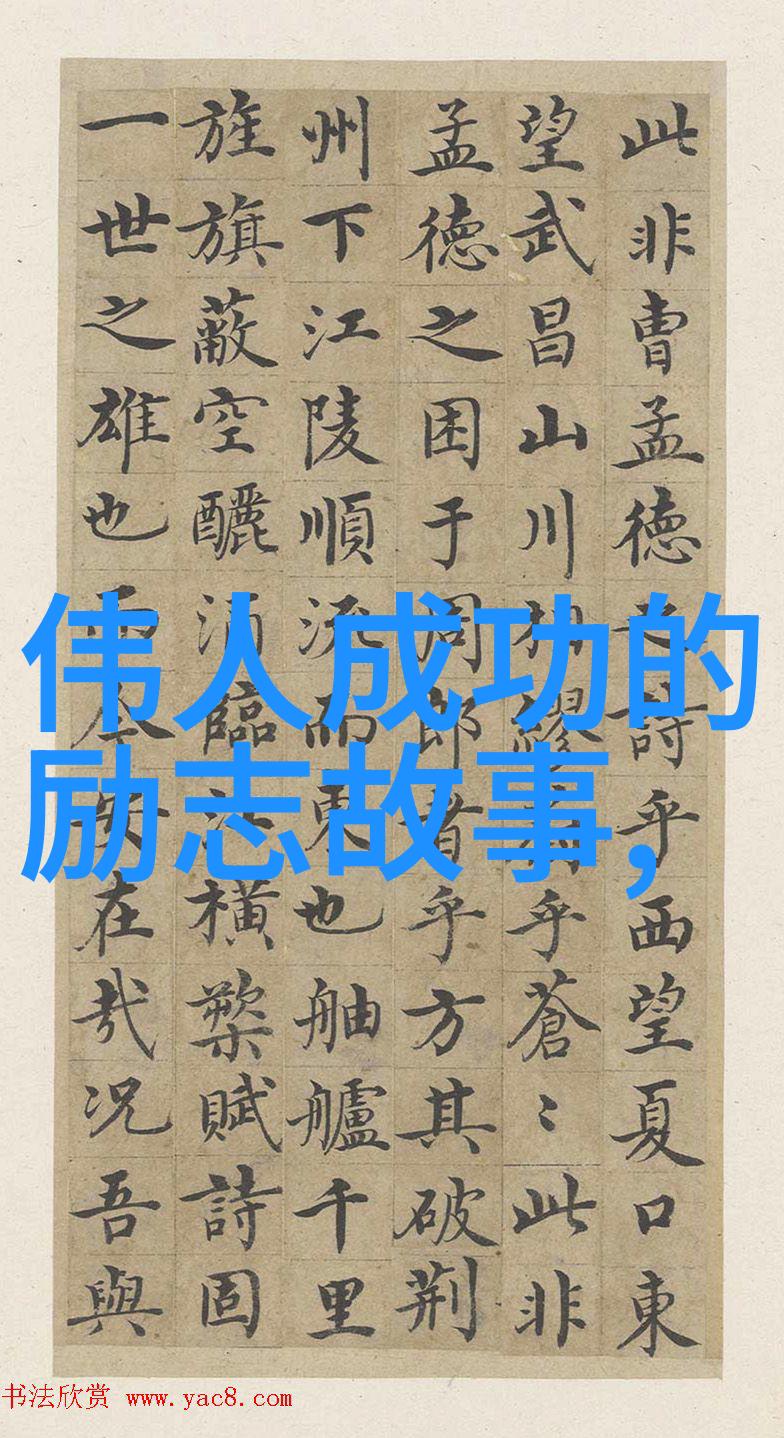 此非曹孟德之詩乎西望夏口東
望武昌山川相繆乎蒼〻此非
孟德之困于周郎者乎方其破荊
州下江陵順流而東也舳艫千里
旌旗蔽空釃酒臨江橫槊賦詩固
一世之雄也而今安在哉況吾與
伟人成功的
励志故事,
书法欣赏 www.yac8.com